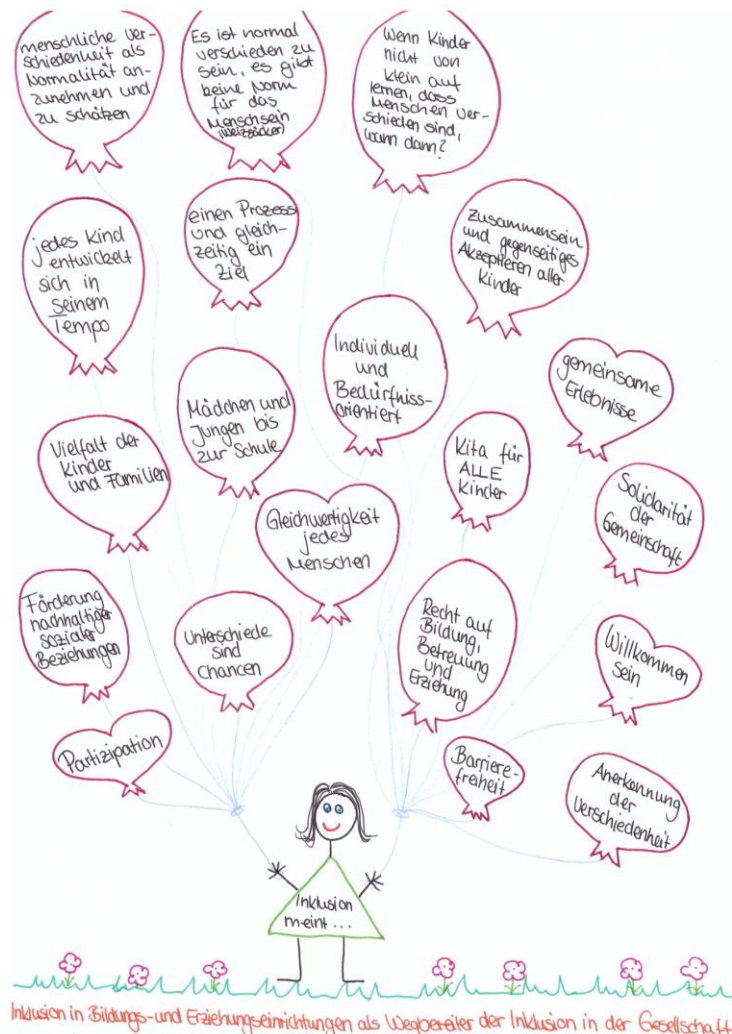 menschliche Ver-
schiedenheit als
Normalität an-
zunehmen und
zu schätzen
Es ist normal
verschieden zu
sein, es gibt
keine Norm
für das
Menschsein
(Weizsäcker)
Wenn Kinder
nicht von
klein auf
lernen, dass
Menschen ver-
schieden sind,
wann dann?
jedes Kind
entwickelt
sich in
seinem
Tempo
einen Prozess
und gleich-
zeitig ein
Ziel
zusammensein
und gegenseitiges
Akzeptieren aller
Kinder
Individuell
und
Bedürfniss-
orientiert
gemeinsame
Erlebnisse
Mädchen und
Jungen bis
zur Schule
Vielfalt der
Kinder
und Familien
Kita für
ALLE
Kinder
Solidarität
der
Gemeinschaft
Gleichwertigkeit
jedes
Menschen
Förderung
nachhaltiger
sozialer
Beziehungen
Unterschiede
sind
Chancen
Recht auf
Bildung,
Betreuung
und
Erziehung
Willkommen
Sein
Partizipation
Barriere-
freiheit
Anerkennung
der
Verschiedenheit
Inklusion
meint ...
Inklusion in Bildungs- und Erziehungseinrichtungen als Wegbereiter der Inklusion in der Gesellschaft